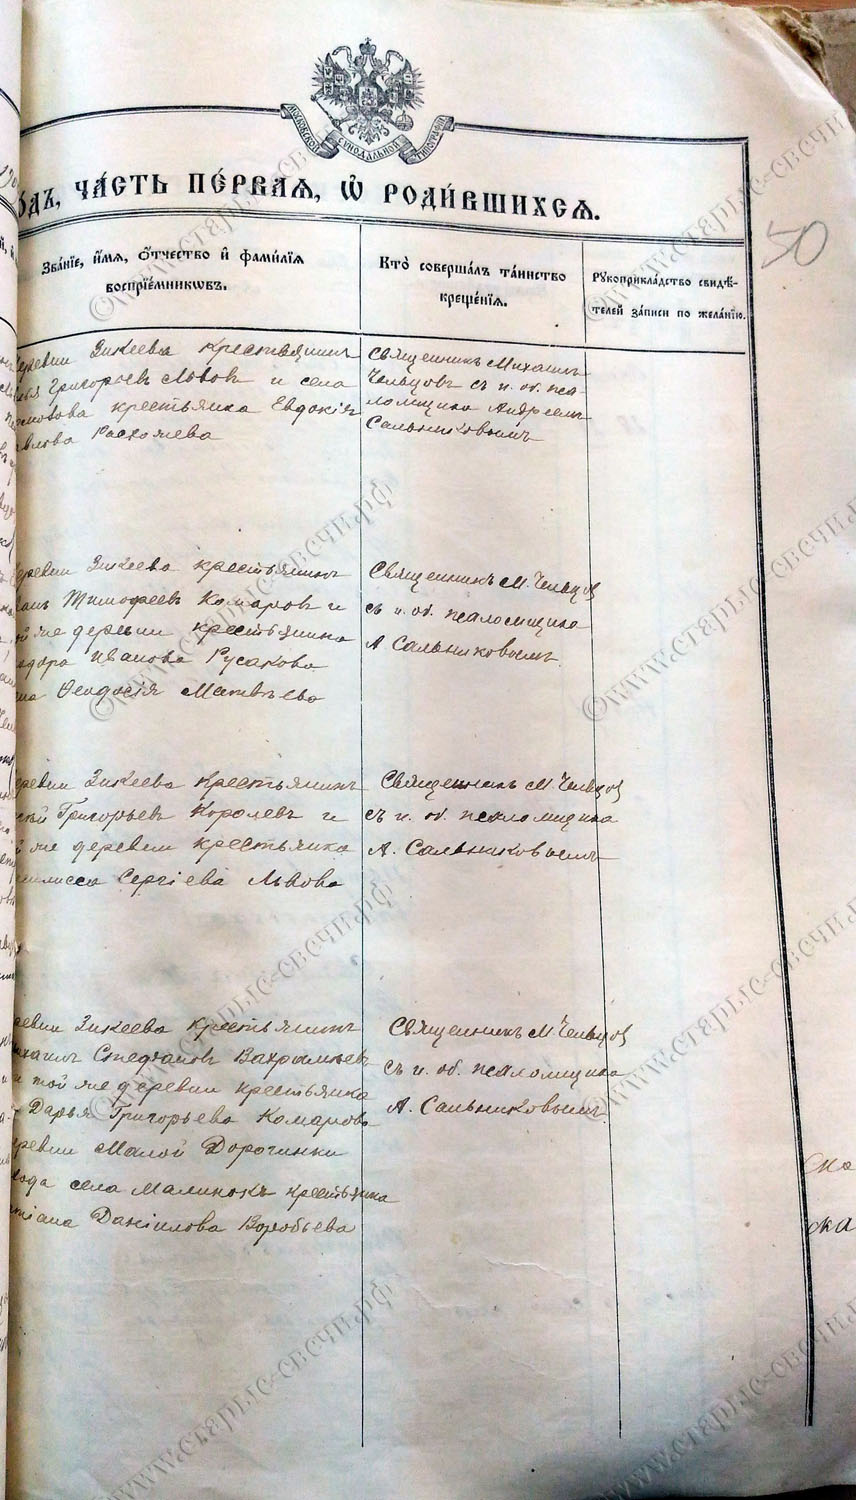 МОСКОВСКОЙ СѴНОДАЛЬНОЙ ТИПОГРАФІИ
ЧА́СТЬ ПЕ́РВАЯ, Ѡ҆ РОДИ́ВШИХСЯ.
50
Зва́нїе, и҆́мѧ, ѻ҆́тчество и҆ фами́лїѧ
воспрїе́мникѡвъ.
Кто̀ соверша́лъ та́инство
креще́нїѧ.
Рꙋкоприкла́дство свидѣ́-
телей за́писи по жела́нїю.
деревни Зикеева крестьянинъ
Григорьевъ Львовъ и села
крестьянка Евдокія
Священникъ Михаилъ
Чельцовъ съ и. об. пса-
ломщика Андреемъ
Сальниковымъ
деревни Зикеева крестьянинъ
Тимофеевъ Комаровъ и
той же деревни крестьянина
Иванова Русакова
Ѳеодосія Матвѣева
Священникъ М. Чельцов
съ и. об. псаломщика
А Сальниковымъ
деревни Зикеева крестьянинъ
Григорьевъ Королевъ и
же деревни крестьянка
Сергіева Львова
Священникъ М Чельцов
съ и. об. псаломщика
А. Сальниковымъ
деревни Зикеева крестьянинъ
Михаилъ Стефановъ Вахрамѣевъ
и той же деревни крестьянка
Дарья Григорьева Комарова
деревни Малой Дорогинки
села Малинокъ крестьянка
Даніилова Воробьева
Священникъ М Чельцов
съ и. об. псаломщика
А. Сальниковымъ
ска
©www.старые-свечи.рф